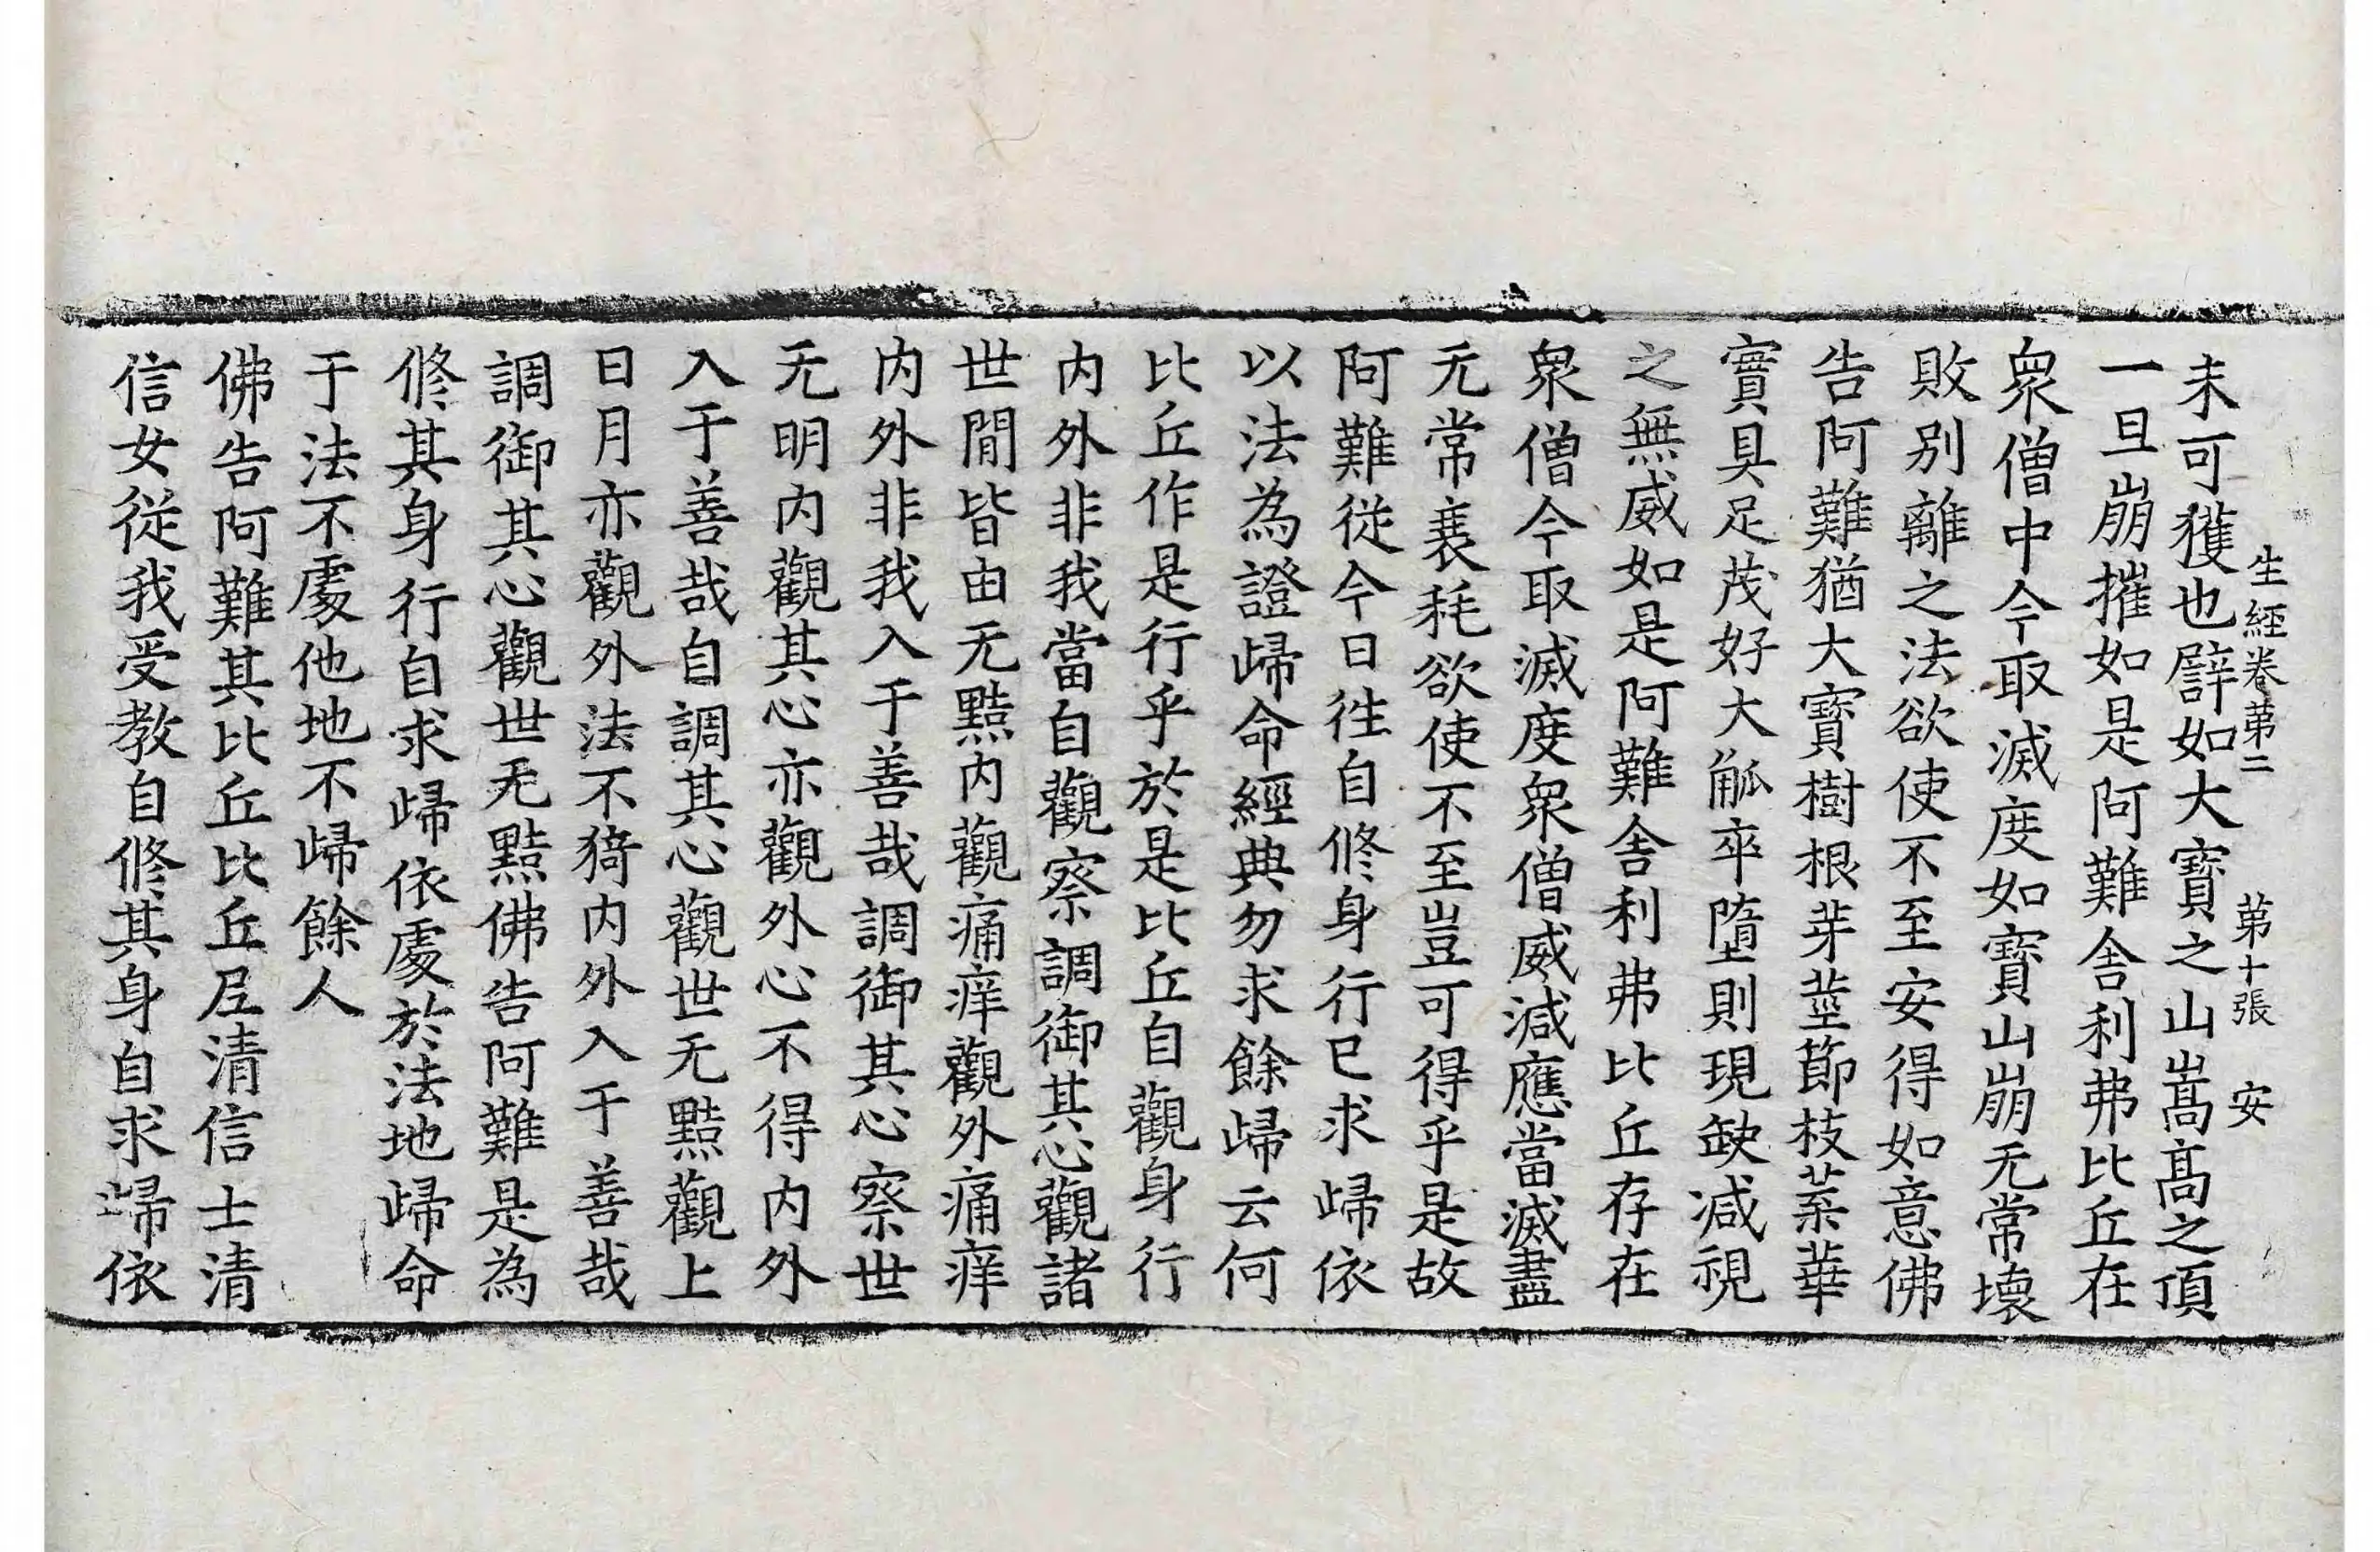 生經卷第二 第十張 安
未可獲也譬如大寶之山嵩高之頂
一旦崩摧如是阿難舍利弗比丘在
衆僧中今取滅度如寶山崩无常壞
敗別離之法欲使不至安得如意佛
告阿難猶大寶樹根芽莖節枝葉華
實具足茂好大觚卒墮則現缺減視
之無威如是阿難舍利弗比丘存在
衆僧今取滅度衆僧威減應當滅盡
无常衰耗欲使不至豈可得乎是故
阿難從今日往自修身行已求歸依
以法為證歸命經典勿求餘歸云何
比丘作是行乎於是比丘自觀身行
内外非我當自觀察調御其心觀諸
世間皆由无黠内觀痛痒觀外痛痒
内外非我入于善哉調御其心察世
无明内觀其心亦觀外心不得内外
入于善哉自調其心觀世无黠觀上
日月亦觀外法不猗内外入于善哉
調御其心觀世无黠佛告阿難是為
修其身行自求歸依處於法地歸命
于法不處他地不歸餘人
佛告阿難其比丘比丘尼清信士清
信女從我受教自修其身自求歸依